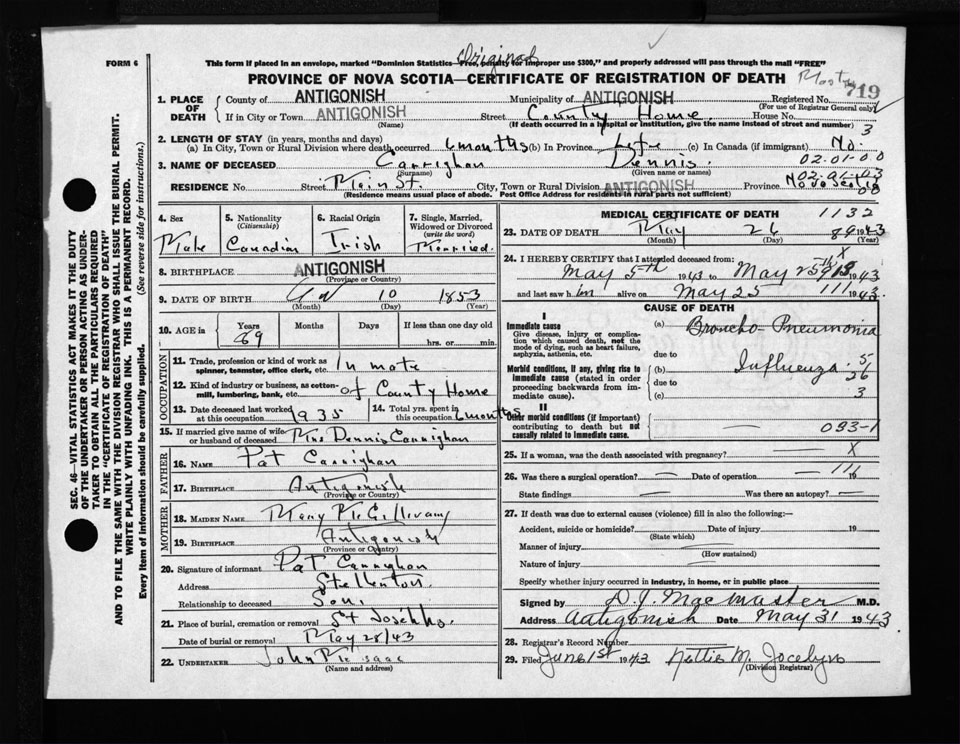 Original
FORM 6
This form if placed in an envelope, marked "Dominion Statistics—Free, penalty for improper use $300," and properly addressed will pass through the mail "FREE"
PROVINCE OF NOVA SCOTIA—CERTIFICATE OF REGISTRATION OF DEATH
719
1. PLACE OF DEATH
County of ANTIGONISH Municipality of ANTIGONISH Registered No.
(For use of Registrar General only)
If in City or Town ANTIGONISH Street County Home. House No.
(Name) (If death occurred in a hospital or institution, give the name instead of street and number) 3
2. LENGTH OF STAY (in years, months and days)
(a) In City, Town or Rural Division where death occurred 6 months (b) In Province Life (c) In Canada (if immigrant) No.
02.01.00
3. NAME OF DECEASED Carrighan Dennis.
(Surname) (Given name or names)
RESIDENCE No. Street Main St. City, Town or Rural Division ANTIGONISH Province Nova Scotia
(Residence means usual place of abode. Post Office Address for residents in rural parts not sufficient)
4. Sex
Male
5. Nationality (Citizenship)
Canadian
6. Racial Origin
Irish
7. Single, Married, Widowed or Divorced (write the word)
Married.
8. BIRTHPLACE ANTIGONISH
(Province or Country)
9. DATE OF BIRTH 10 1853
(Month) (Day) (Year)
10. AGE in Years Months Days If less than one day old
89 hrs. or min.
OCCUPATION
11. Trade, profession or kind of work as spinner, teamster, office clerk, etc. Inmate
12. Kind of industry or business, as cotton-mill, lumbering, bank, etc. of County Home
13. Date deceased last worked at this occupation 1935
14. Total yrs. spent in this occupation 6 months
15. If married give name of wife or husband of deceased Mrs Dennis Carrighan
FATHER
16. NAME Pat Carrighan
17. BIRTHPLACE Antigonish
(Province or Country)
MOTHER
18. MAIDEN NAME Mary McGillivary
19. BIRTHPLACE Antigonish
(Province or Country)
20. Signature of informant Pat Carrighan
Address Stellarton
Relationship to deceased Son.
21. Place of burial, cremation or removal St Josephs.
Date of burial or removal May 28/43
22. UNDERTAKER John McIsaac
(Name and address)
MEDICAL CERTIFICATE OF DEATH 1132
23. DATE OF DEATH May 26 1943
(Month) (Day) (Year)
24. I HEREBY CERTIFY that I attended deceased from: X
May 5th 1943 to May 25th 1943
and last saw him alive on May 25 1943.
CAUSE OF DEATH
I
Immediate cause
Give disease, injury or complication which caused death, not the mode of dying, such as heart failure, asphyxia, asthenia, etc.
(a) Broncho-Pneumonia
due to
Morbid conditions, if any, giving rise to immediate cause (stated in order proceeding backwards from immediate cause).
(b) Influenza 5
due to 26
(c) 3
II
Other morbid conditions (if important) contributing to death but not causally related to immediate cause.
033-1
25. If a woman, was the death associated with pregnancy? X
26. Was there a surgical operation? — Date of operation — 19
State findings — Was there an autopsy? —
27. If death was due to external causes (violence) fill in also the following:—
Accident, suicide or homicide? Date of injury 19
(State which)
Manner of injury
(How sustained)
Nature of injury
Specify whether injury occurred in industry, in home, or in public place
Signed by D. J. MacMaster M.D.
Address Antigonish Date May 31 1943
28. Registrar's Record Number
29. Filed June 1st 1943 Nettie M. Jocelyn
(Division Registrar)
SEC. 46—VITAL STATISTICS ACT MAKES IT THE DUTY OF THE UNDERTAKER OR PERSON ACTING AS UNDERTAKER TO OBTAIN ALL THE PARTICULARS REQUIRED IN THE "CERTIFICATE OF REGISTRATION OF DEATH"
AND TO FILE THE SAME WITH THE DIVISION REGISTRAR WHO SHALL ISSUE THE BURIAL PERMIT.
WRITE PLAINLY WITH UNFADING INK. THIS IS A PERMANENT RECORD.
Every item of information should be carefully supplied. (See reverse side for instructions.)